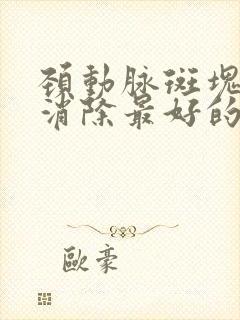 頸動脉斑塊
消除最好的
歐豪